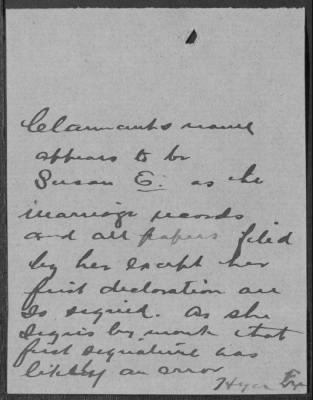 Claimants name
appears to be
Susan E. as the
marriage records
and all papers filed
by her except her
first declaration are
so signed. As she
signs by mark that
first signature was
likely an error